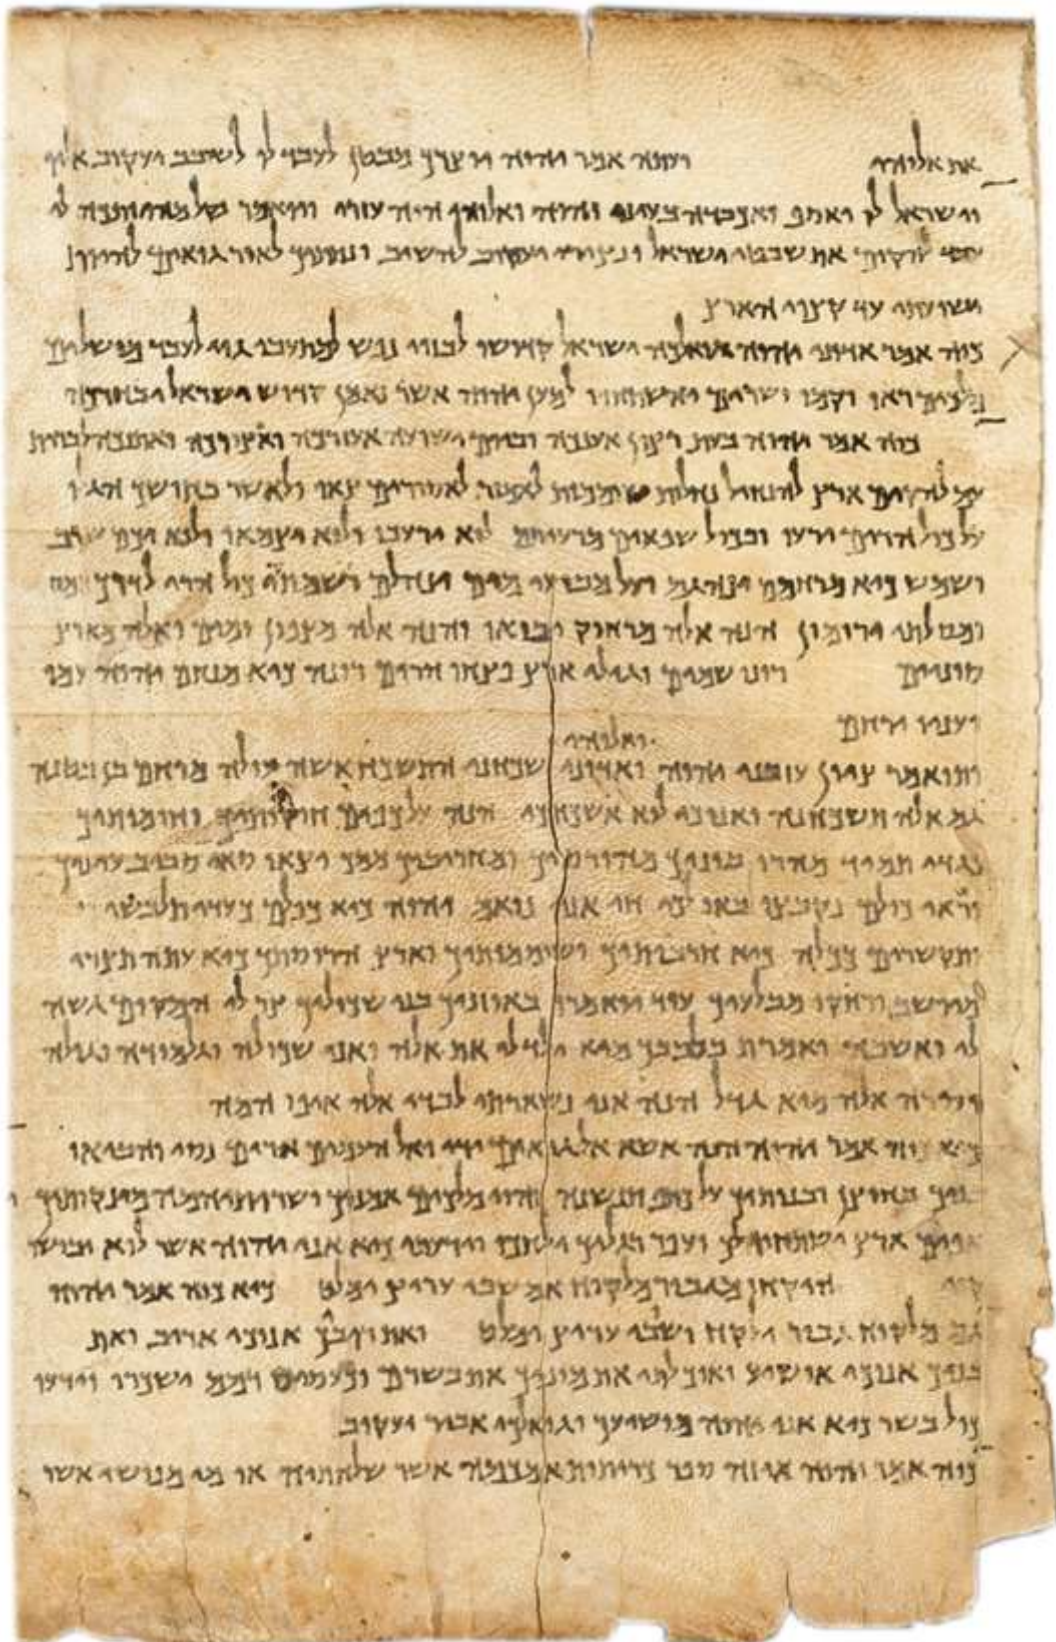 את אלוהי ועתה אמר יהוה יוצרך מבטן לעבד לו לשובב יעקוב אליו
וישראל לו יאסף ואכבדה בעיני יהוה ואלוהי היה עזרי ויואמר הנקל מהיותכה לי
עבד להקים את שבטי ישראל ונצירי יעקוב להשיב ונתתיך לאור גואים להיות
ישועתי עד קצוי הארץ
כוה אמר אדוני יהוה גואלכה ישראל קדושו לבזוי נפש למתעבי גוי לעבד מושלים
מלכים ראו וקמו ושרים והשתחוו למען יהוה אשר נאמן קדוש ישראל יבחרכה
כוה אמר יהוה בעת רצון אענכה וביום ישועה אעזרכה ואצורכה ואתנכה לברית
עם להקים ארץ להנחיל נחלות שוממות לאמר לאסורים צאו ולאשר בחושך הגלו
על כול הרים ירעו ובכול שפאים מרעיתם לוא ירעבו ולוא יצמאו ולוא יכם שרב
ושמש כיא מרחמם ינהגם ועל מבועי מים ינהלם ושמתי כול הרי לדרך
ומסלותי ירומון הנה אלה מרחוק יבואו והנה אלה מצפון ומים ואלה מארץ
סוניים רונו שמים וגילי ארץ פצחו הרים רונה כיא מנחם יהוה עמו
ועניו ירחם
ואלוהי
ותואמר ציון עזבני יהוה ואדוני שכחני התשכח אשה עולה מרחם בן בטנה
גם אלה תשכחנה ואנוכי לוא אשכחכי הנה על כפים חקותיך וחומותיך
נגדי תמיד מהרו בוניך מהורסיך ומחריביך ממך יצאו שאי סביב עיניך
וראי כולם נקבצו באו לך חי אני נואם יהוה כיא כולם כעדי תלבשי
ותקשרים ככלה כיא חרבותיך ושוממותיך וארץ הריסותיך כיא עתה תצרי
מיושב ורחקו מבלעיך עוד יואמרו באוזניך בני שכוליך צר לי המקום גשה
לי ואשבה ואמרת בלבבך מיא ילד לי את אלה ואני שכולה וגלמודה וגולה
וסרה אלה מיא גדל הנה אני נשארתי לבדי אלה איפו המה
כיא כוה אמר יהוה הנה אשא אל גואים ידי ואל העמים ארים נסי והביאו
בניך בחוצן ובנותיך על כתף תנשינה והיו מלכים אמניך ושרותיהמה מיניקותיך
אפים ארץ ישתחוו לך ועפר רגליך ילחכו וידעתי כיא אני יהוה אשר לוא יבושו
קוי היקחו מגבור מלקוח אם שבי עריץ ימלט כיא כוה אמר יהוה
גם מלקוח גבור ילקח ושבי עריץ ימלט ואת ריבך אנוכי אריב ואת
בניך אנוכי אושיע ואוכלתי את מוניך את בשרם וכעסיס דמם ישכרו וידעו
כול בשר כיא אני יהוה מושיעך וגואלך אביר יעקוב
כוה אמר יהוה אי זה ספר כריתות אמכמה אשר שלחתיה או מי מנושי אשר